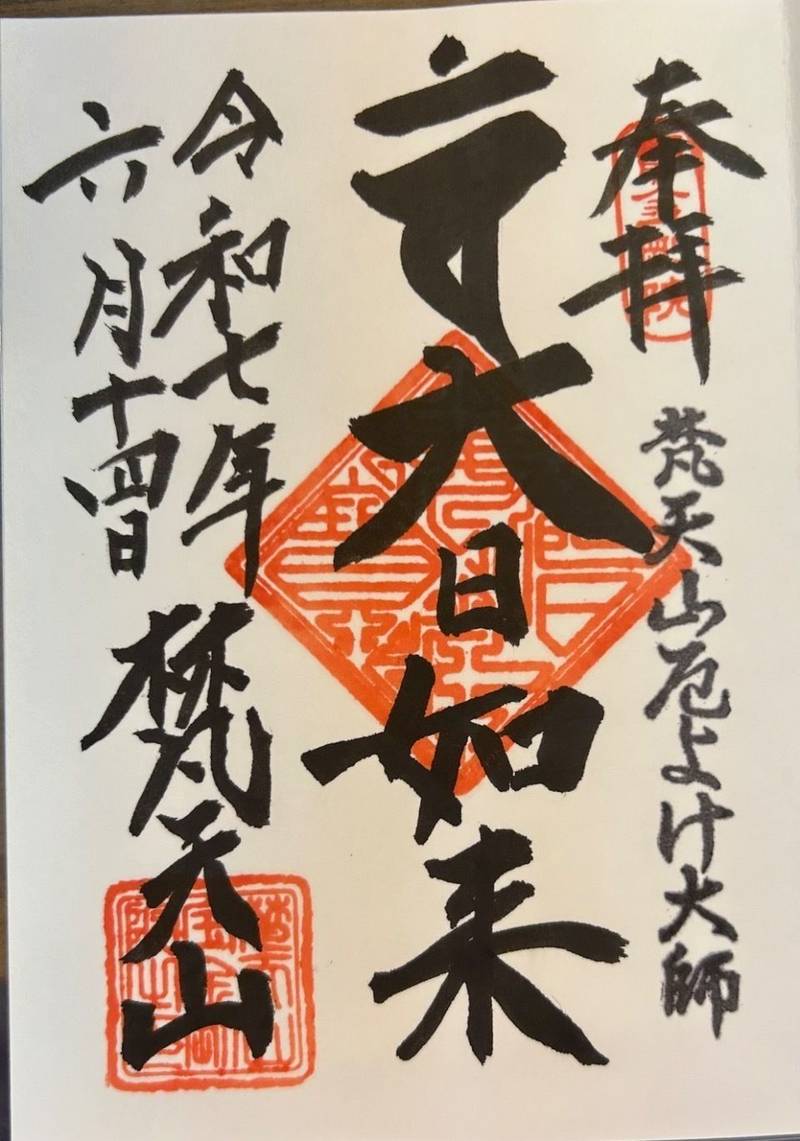 奉拝
梵天山厄よけ大師
大日如来
令和七年
六月十四日
梵天山